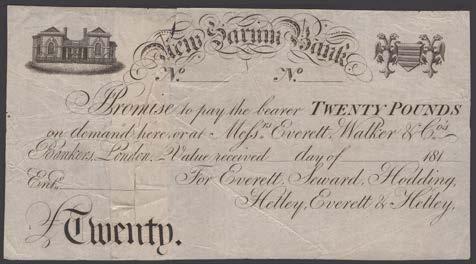 New Sarum Bank
No No
Promise to pay the bearer TWENTY POUNDS
on demand here, or at Mess.rs Everett, Walker & Co.s
Bankers, London, Value received day of 181
Ent. For Everett, Seward, Hodding,
Hetley, Everett & Hetley,
£Twenty.